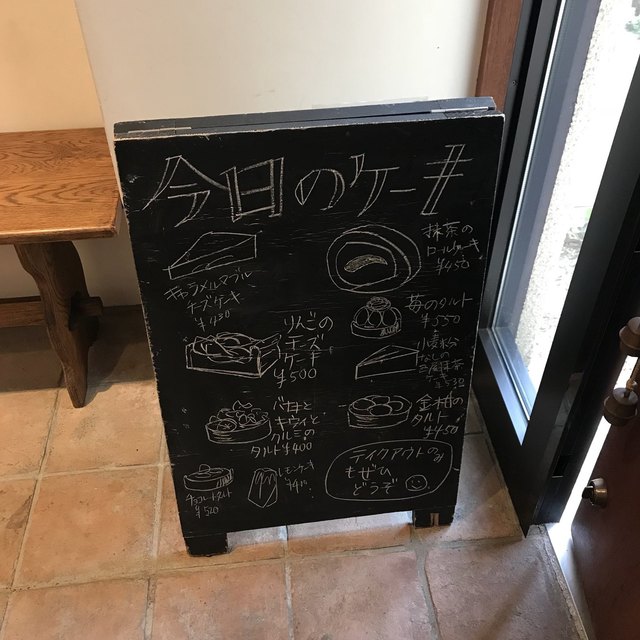 今日のケーキ
キャラメルマーブル
チーズケーキ
抹茶の
ロールケーキ
¥450
りんごの
チーズ
ケーキ
¥500
苺のタルト
¥550
小麦粉
なしの
抹茶
バナナと
キウイと
クルミの
タルト¥400
金柑の
タルト
¥450
チョコレートタルト
¥520
レモンケーキ
テイクアウトのみ
もぜひ
どうぞ